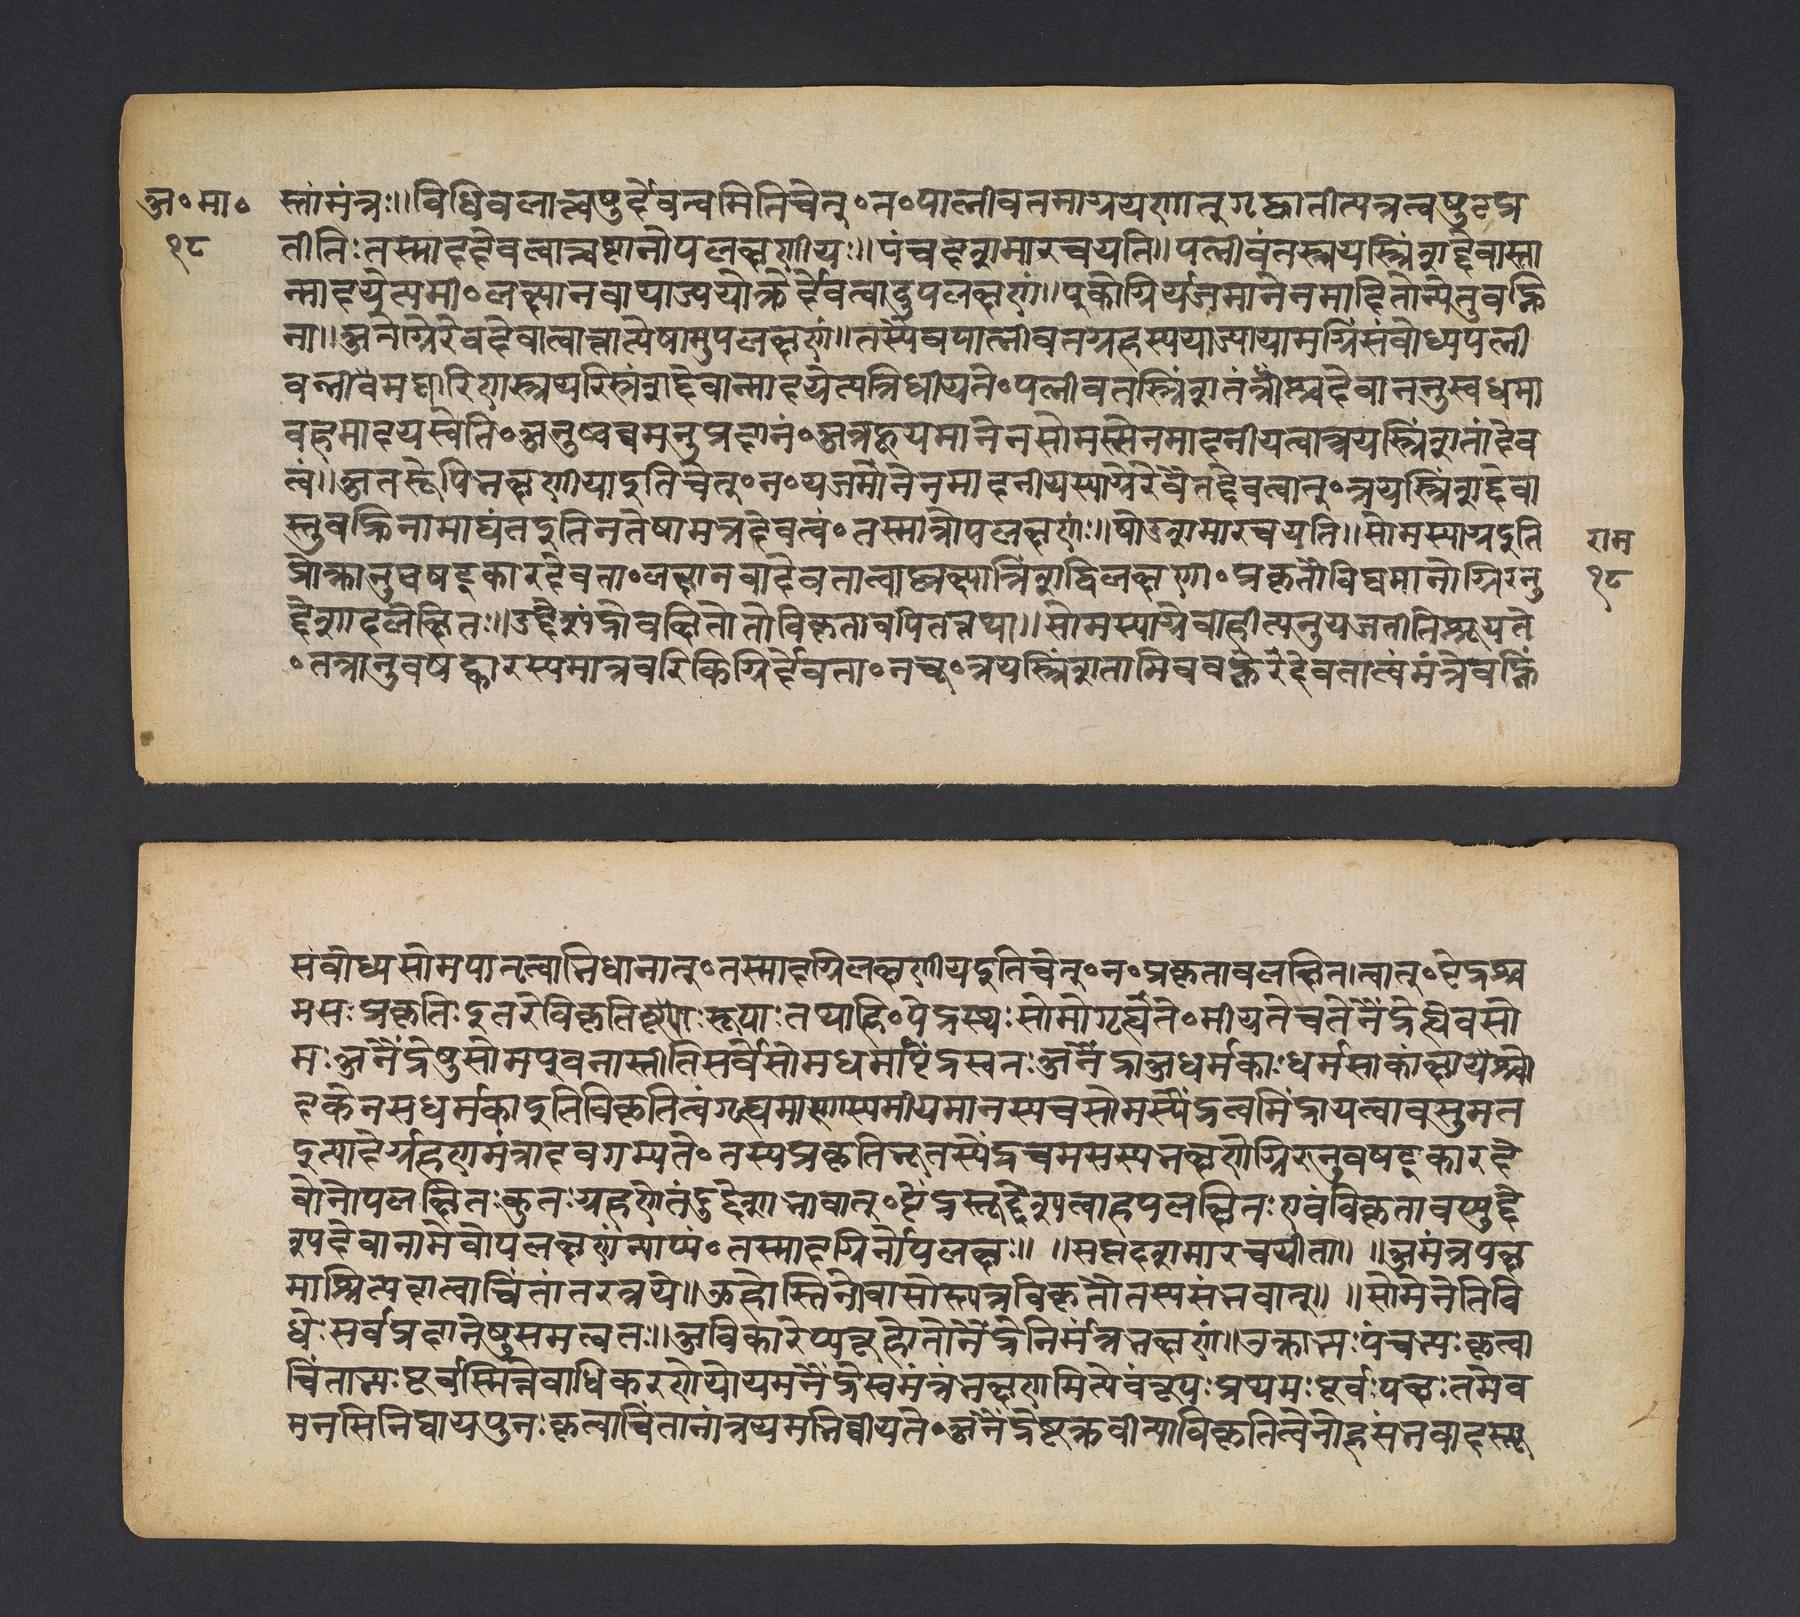 अ॰मा॰
१८
स्तामंत्रः॥विधिबलात्त्वष्टुर्देवत्वमितिचेत्॰न॰पात्नीवतमाग्रयणात्गृह्णातीत्यत्रत्वष्टुरप्र
तीतिः तस्माददेवत्वात्त्वष्टानोपलक्षणीयः॥पंचदशमारचयति॥पत्नीवंतस्त्रयस्त्रिंशद्देवास्ता
न्मादयेत्यमी॰लक्ष्यानवायाज्ययोक्तेर्देवत्वादुपलक्षणं॥एकोग्निर्यजमानेनमादितोन्येतुवह्नि
ना॥अतोग्नेरेवदेवत्वान्नान्येषामुपलक्षणं॥तस्यैवपात्नीवतग्रहस्ययाज्यायामग्निंसंबोध्यपत्नी
वन्नामधारिणस्त्रयस्त्रिंशद्देवान्मादयेत्यभिधीयते॰पत्नीवतस्त्रिंशतंत्रींश्चदेवाननुस्वधमा
वहमादयस्वेति॰अनुष्वधमनुप्रदानं॰अत्रहूयमानेनसोमरसेनमादनीयत्वात्त्रयस्त्रिंशतांदेव
त्वं॥अतस्तेपिलक्षणीयाइतिचेत्॰न॰यजमानेनमादनीयस्याग्नेरेवैतद्देवत्वात्॰त्रयस्त्रिंशद्देवा
स्तुवह्निनामाद्यंतइतिनतेषामत्रदेवत्वं॰तस्मान्नोपलक्षणं॥षोडशमारचयति॥सोमस्याग्नइति
प्रोक्तानुवषट्कारदेवता॰लक्ष्यानवादेवतात्वाल्लक्ष्यात्रिंशद्विलक्षणा॰प्रकृतौविद्यमानोग्निरनु
द्देशादलक्षितः॥उद्देशंद्रोवक्षितोतोविकृतावपितत्तथा॥सोमस्याग्नेवीहीत्यनुयजतीतिश्रूयते
॰तत्रानुवषट्कारस्यमांत्रवर्णिकोग्निर्देवता॰नच॰त्रयस्त्रिंशतामिववह्नेरदेवतात्वंमंत्रेवह्निं
राम
१८
संबोध्यसोमपातृत्वाभिधानात्॰तस्मादग्निर्लक्षणीयइतिचेत्॰न॰प्रकृतावलक्षितत्वात्॰ऐंद्रश्च
मसःप्रकृतिः इतरेविकृतिरूपाः तथाहि॰ऐंद्रस्थः सोमोगृह्यते॰मीयतेचतेनैंद्रेष्वेवसो
मः अनैंद्रेषुसोमएवनास्तीतिसर्वेसोमधर्माऐंद्रस्वतः अनैंद्राअधर्मकाः धर्मसाकांक्षायेश्चो
दकेनसधर्मकाइतिविकृतित्वंगृह्यमाणस्यमीयमानस्यचसोमस्यैंद्रत्वमिंद्रायत्वावसुमत
इत्यादेर्ग्रहणमंत्रादवगम्यते॰तस्यप्रकृतिभूतस्यैंद्रचमसस्यभक्षणेग्निरनुवषट्कारदे
वोनोपलक्षितः कुतः ग्रहणेतदुद्देशाभावात्॰ऐंद्रस्तूद्देश्यत्वादुपलक्षितः एवंविकृतावप्युद्दे
श्यदेवानामेवोपलक्षणंन्याय्यं॰तस्मादग्निर्नोपलक्ष्यः॥ ॥सप्तदशमारचयति॥ ॥अमंत्रपक्ष
माश्रित्यकृत्वाचिंतांतरत्रये॥ऊहोस्तिनोवासोस्त्यत्रविकृतौतस्यसंभवात्॥ ॥सोमेनेतिवि
धेः सर्वप्रदानेषुसमत्वतः॥अविकारेप्यनूहोतोनैंद्रेनिर्मंत्रभक्षणं॥उक्ताभ्यः पंचभ्यः कृत्वा
चिंताभ्यः पूर्वस्मिन्नेवाधिकरणेयोयमनैंद्रेस्वमंत्रंभक्षणमित्येवंरूपः प्रथमः पूर्वः पक्षः तमेव
मनसिनिधायपुनः कृत्वाचिंतानांत्रयमभिधीयते॰अनैंद्रेष्वक्तवीत्याविकृतित्वेनोहसंभवादस्त्यू